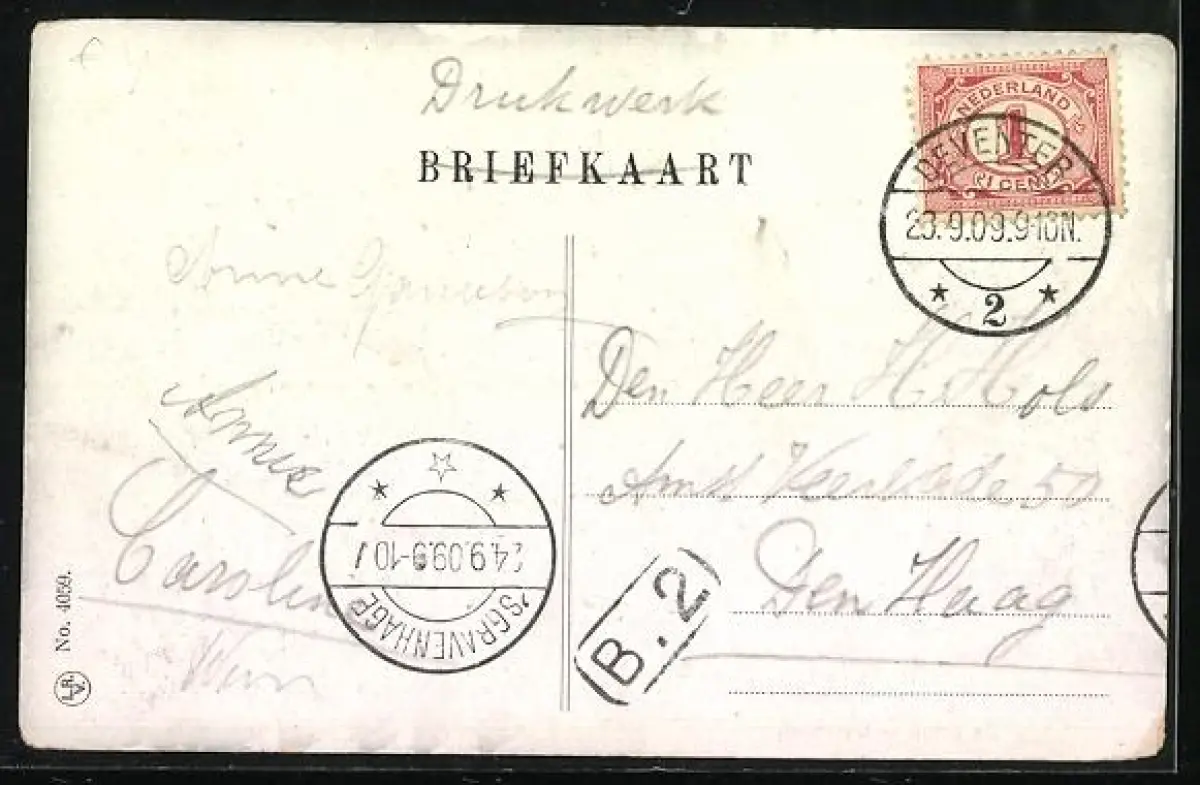 Drukwerk
BRIEFKAART
NEDERLAND
1
1 CENT
DEVENTER
23.9.09.9-10N.
2
Annie
Annie
Caroline
Wim
Den Heer H. Hols
50
Den Haag
24.9.09.9-10V
'SGRAVENHAGE
B.2
No. 4059.